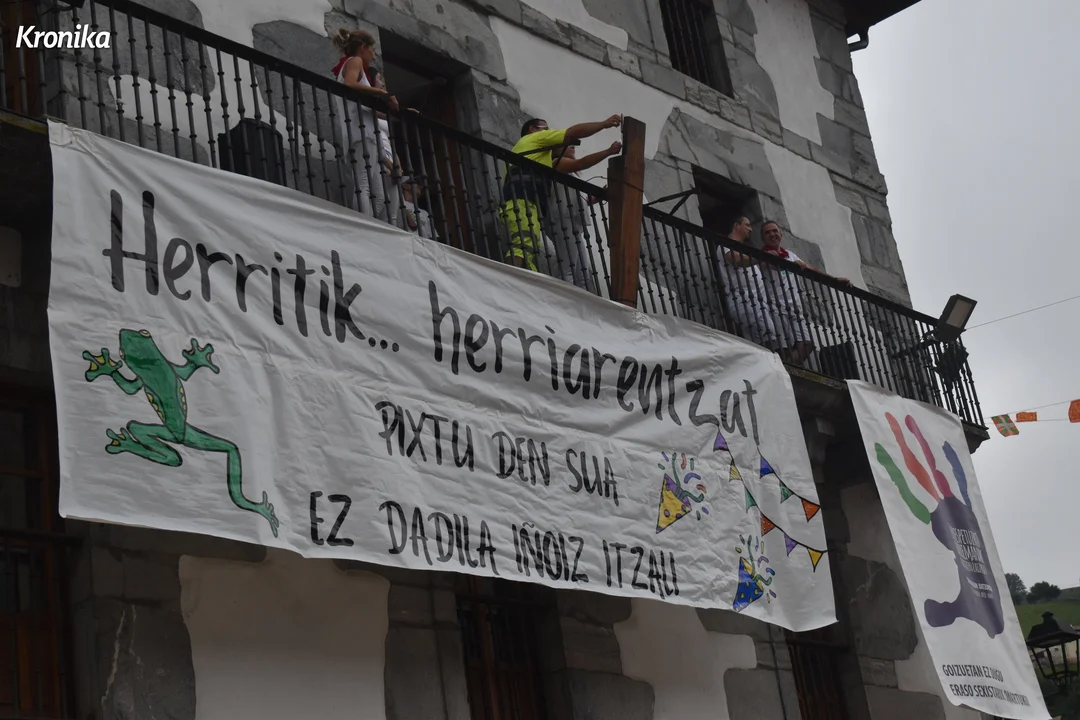 Kronika
Herritik... herriarentzat
PIXTU DEN SUA
EZ DADILA IÑOIZ ITZALI
GOIZUETAN EZ DUGU
ERASO SEXISTARIK ONARTUKO